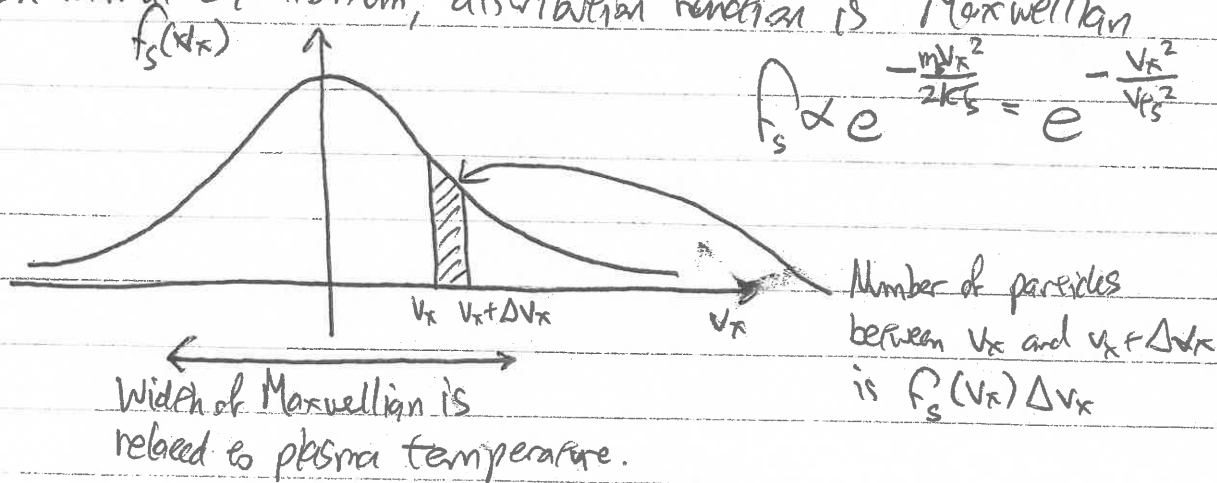 thermal equilibrium, distribution function is Maxwellian
f_s(v_x)
f_s ∝ e^{-\frac{m_s v_x^2}{2kT_s}} = e^{-\frac{v_x^2}{v_{t_s}^2}}
v_x v_x+Δv_x
v_x
Number of particles
between v_x and v_x+Δv_x
is f_s(v_x)Δv_x
Width of Maxwellian is
related to plasma temperature.